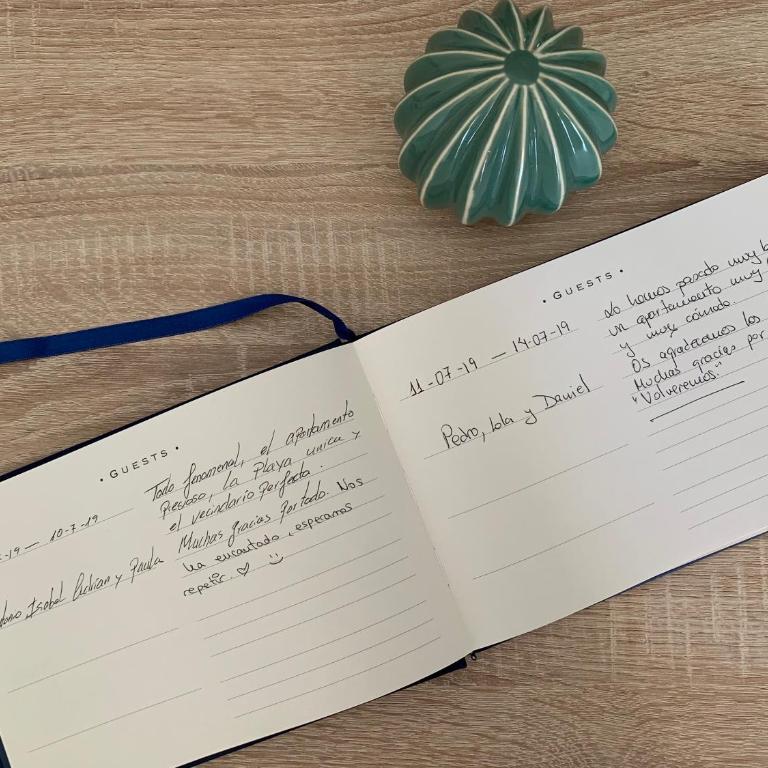 · GUESTS ·
-19 — 10-7-19
Isabel Adrian y Paula
Todo fenomenal, el apartamento
Precioso, la Playa unica y
el vecindario perfecto.
Muchas gracias por todo. Nos
ha encantado, esperamos
repetir. ♡ :)
· GUESTS ·
11-07-19 — 14-07-19
Pedro, Lola y Daniel
Lo hemos pasado muy
un apartamento muy
y muy cómodo.
Os agradecemos los
Muchas gracias por
"Volveremos."